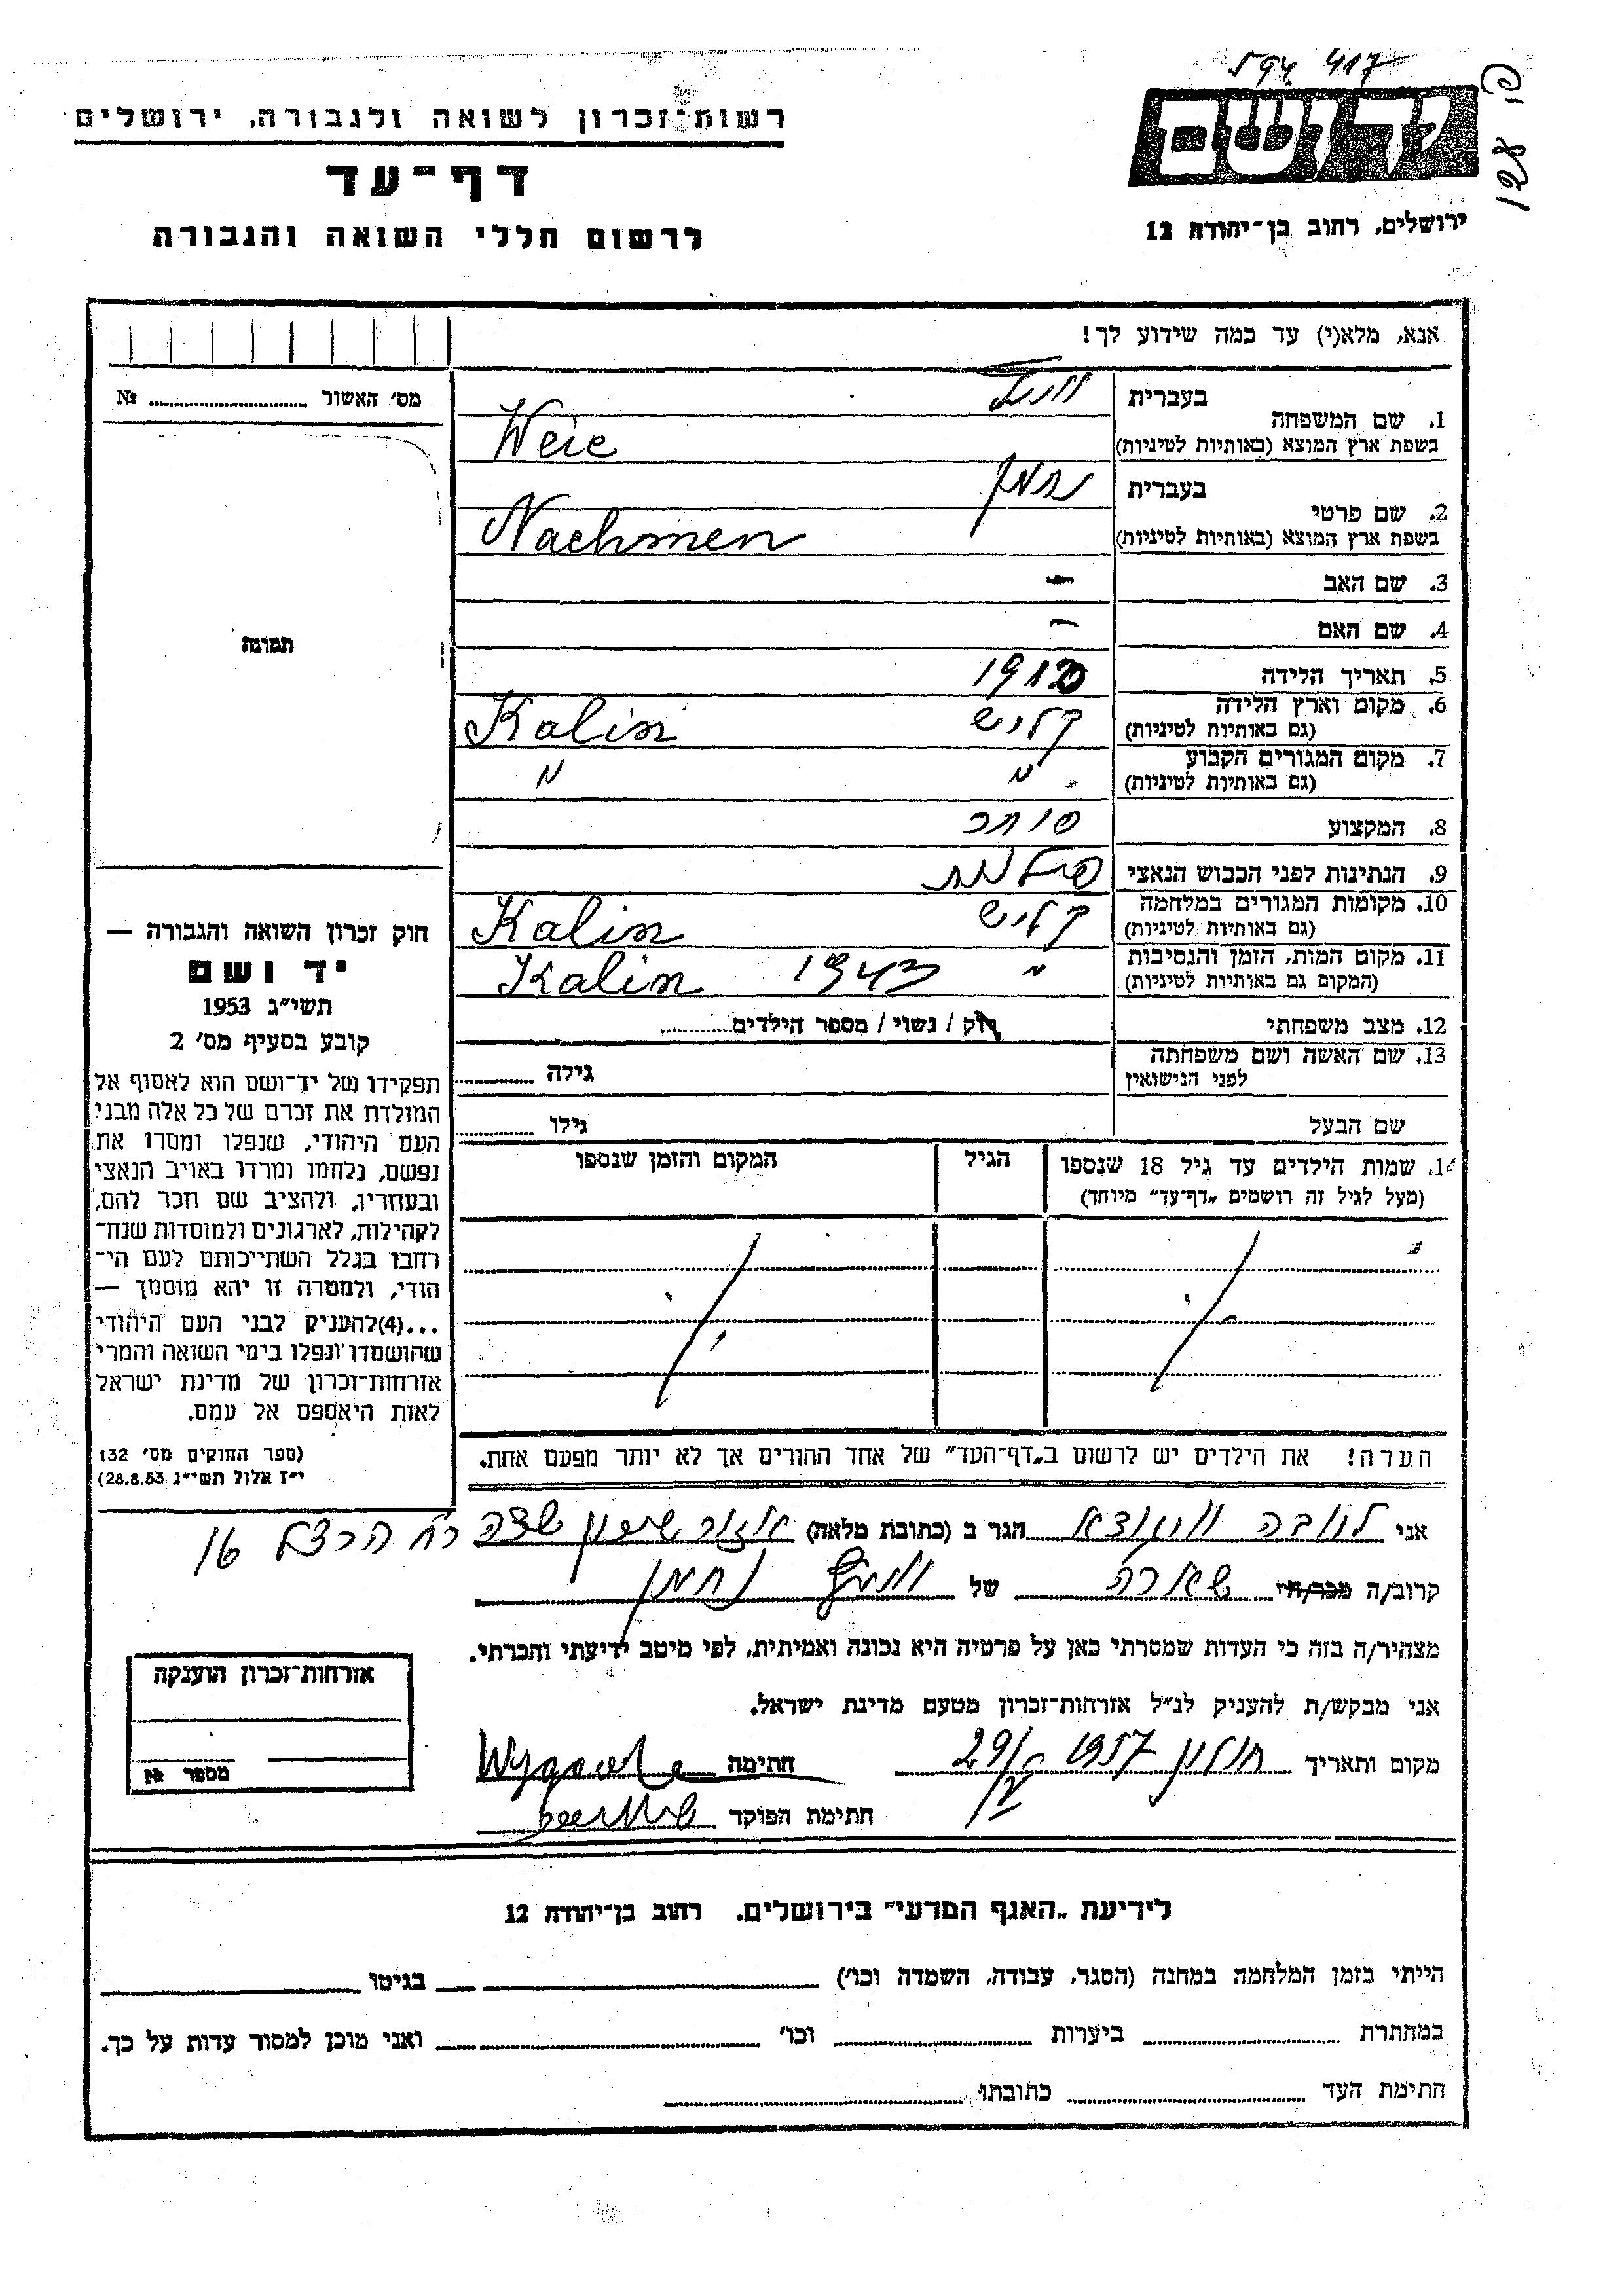 594 417
רשות־זכרון לשואה ולגבורה, ירושלים
דף־עד
לרשום חללי השואה והגבורה
ידושם
ירושלים, רחוב בן־יהודה 12
אנא, מלא(י) עד כמה שידוע לך!
מס׳ האשור № 
1. שם המשפחה
בעברית
בשפת ארץ המוצא (באותיות לטיניות) Weie
2. שם פרטי
בעברית נחמן
בשפת ארץ המוצא (באותיות לטיניות) Nachmen
3. שם האב –
4. שם האם –
5. תאריך הלידה
6. מקום וארץ הלידה קליש Kalin
(גם באותיות לטיניות)
7. מקום המגורים הקבוע " "
(גם באותיות לטיניות)
8. המקצוע סוחר
9. הנתינות לפני הכבוש הנאצי
10. מקומות המגורים במלחמה קליש Kalin
(גם באותיות לטיניות)
11. מקום המות, הזמן והנסיבות " 1943 Kalin
(המקום גם באותיות לטיניות)
12. מצב משפחתי רוק / נשוי / מספר הילדים
13. שם האשה ושם משפחתה
לפני הנישואין
גילה
שם הבעל
גילו
14. שמות הילדים עד גיל 18 שנספו
(מעל לגיל זה רושמים „דף־עד״ מיוחד)
הגיל
המקום והזמן שנספו
הערה! את הילדים יש לרשום ב„דף־העד״ של אחד ההורים אך לא יותר מפעם אחת.
תמונה
חוק זכרון השואה והגבורה —
יד ושם
תשי״ג 1953
קובע בסעיף מס׳ 2
תפקידו של יד־ושם הוא לאסוף אל
המולדת את זכרם של כל אלה מבני
העם היהודי, שנפלו ומסרו את
נפשם, נלחמו ומרדו באויב הנאצי
ובעוזריו, ולהציב שם וזכר להם,
לקהילות, לארגונים ולמוסדות שנח־
רחבו בגלל השתייכותם לעם הי־
הודי, ולמטרה זו יהא מוסמך —
...(4)להעניק לבני העם היהודי
שהושמדו ונפלו בימי השואה והמרי
אזרחות־זכרון של מדינת ישראל
לאות היאספם אל עמם.
(ספר החוקים מס׳ 132
י״ז אלול תשי״ג 28.8.53)
אני לובה הגר ב (כתובת מלאה) רח הרצל 16
קרוב/ה מכר/ה של נחמן
מצהיר/ה בזה כי העדות שמסרתי כאן על פרטיה היא נכונה ואמיתית, לפי מיטב ידיעתי והכרתי.
אני מבקש/ת להעניק לנ״ל אזרחות־זכרון מטעם מדינת ישראל.
מקום ותאריך חולון 1957 29/ חתימה
חתימת הפוקד
אזרחות־זכרון הוענקה
מספר №
לידיעת „האגף המדעי״ בירושלים. רחוב בן־יהודה 12
הייתי בזמן המלחמה במחנה (הסגר, עבודה, השמדה וכו׳) בגיטו
במחתרת ביערות וכו׳ ואני מוכן למסור עדות על כך.
חתימת העד כתובתו